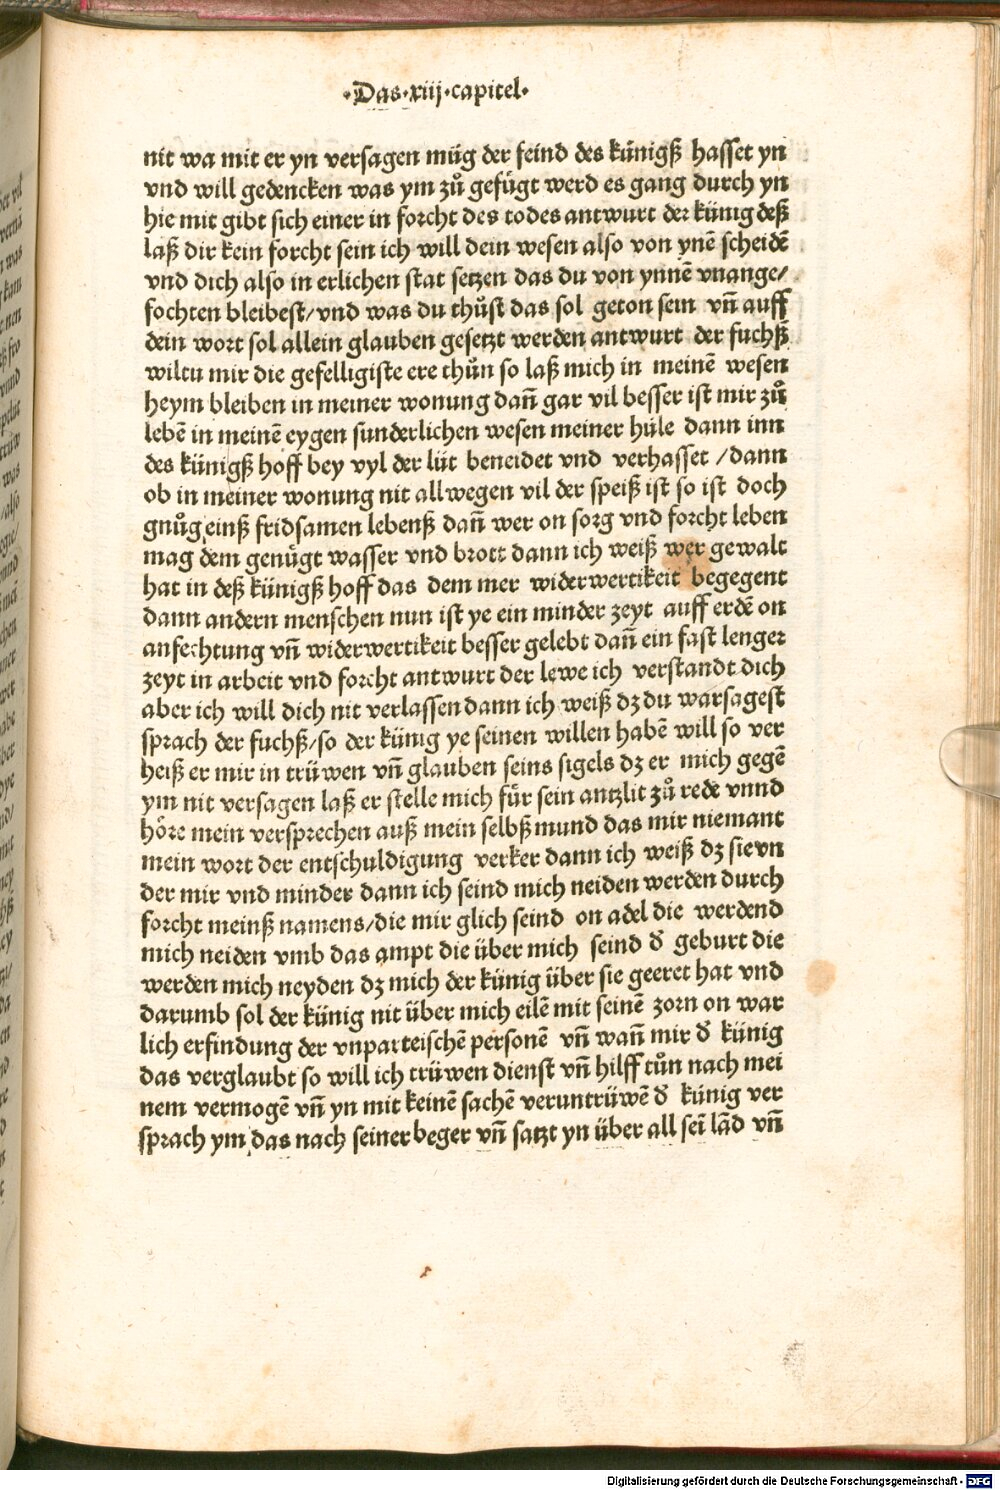 ·Das·xiij·capitel·
nit wa mit er yn versagen müg der feind des künigß hasset yn
vnd will gedencken was ym zů gefügt werd es gang durch yn
hie mit gibt sich einer in forcht des todes antwurt der künig deß
laß dir kein forcht sein ich will dein wesen also von ynē scheidē
vnd dich also in erlichen stat setzen das du von ynnē vnange/
fochten bleibest/vnd was du thůst das sol geton sein vn̄ auff
dein wort sol allein glauben gesetzt werden antwurt der fuchß
wiltu mir die gefelligiste ere thůn so laß mich in meinē wesen
heym bleiben in meiner wonung dan̄ gar vil besser ist mir zů
lebē in meinē eygen sunderlichen wesen meiner hüle dann inn
des künigß hoff bey vyl der lüt beneidet vnd verhasset /dann
ob in meiner wonung nit allwegen vil der speiß ist so ist doch
gnůg einß fridsamen lebenß dan̄ wer on sorg vnd forcht leben
mag dem genügt wasser vnd brott dann ich weiß wer gewalt
hat in deß künigß hoff das dem mer widerwertikeit begegent
dann andern menschen nun ist ye ein minder zeyt auff erdē on
anfechtung vn̄ widerwertikeit besser gelebt dan̄ ein fast lenger
zeyt in arbeit vnd forcht antwurt der lewe ich verstandt dich
aber ich will dich nit verlassen dann ich weiß dz du warsagest
sprach der fuchß/so der künig ye seinen willen habē will so ver
heiß er mir in trüwen vn̄ glauben seins sigels dz er mich gegē
ym nit versagen laß er stelle mich für sein antzlit zů rede vnnd
höre mein versprechen auß mein selbß mund das mir niemant
mein wort der entschuldigung verker dann ich weiß dz sie vn
der mir vnd minder dann ich seind mich neiden werden durch
forcht meinß namens/die mir glich seind on adel die werdend
mich neiden vmb das ampt die über mich seind d̕ geburt die
werden mich neyden dz mich der künig über sie geeret hat vnd
darumb sol der künig nit über mich eilē mit seinē zorn on war
lich erfindung der vnparteischē personē vn̄ wan̄ mir d̕ künig
das verglaubt so will ich trüwen dienst vn̄ hilff tůn nach mei
nem vermogē vn̄ yn mit keinē sachē veruntrüwē d̕ künig ver
sprach ym das nach seiner beger vn̄ satzt yn über all seī lād vn̄
Digitalisierung gefördert durch die Deutsche Forschungsgemeinschaft - DFG